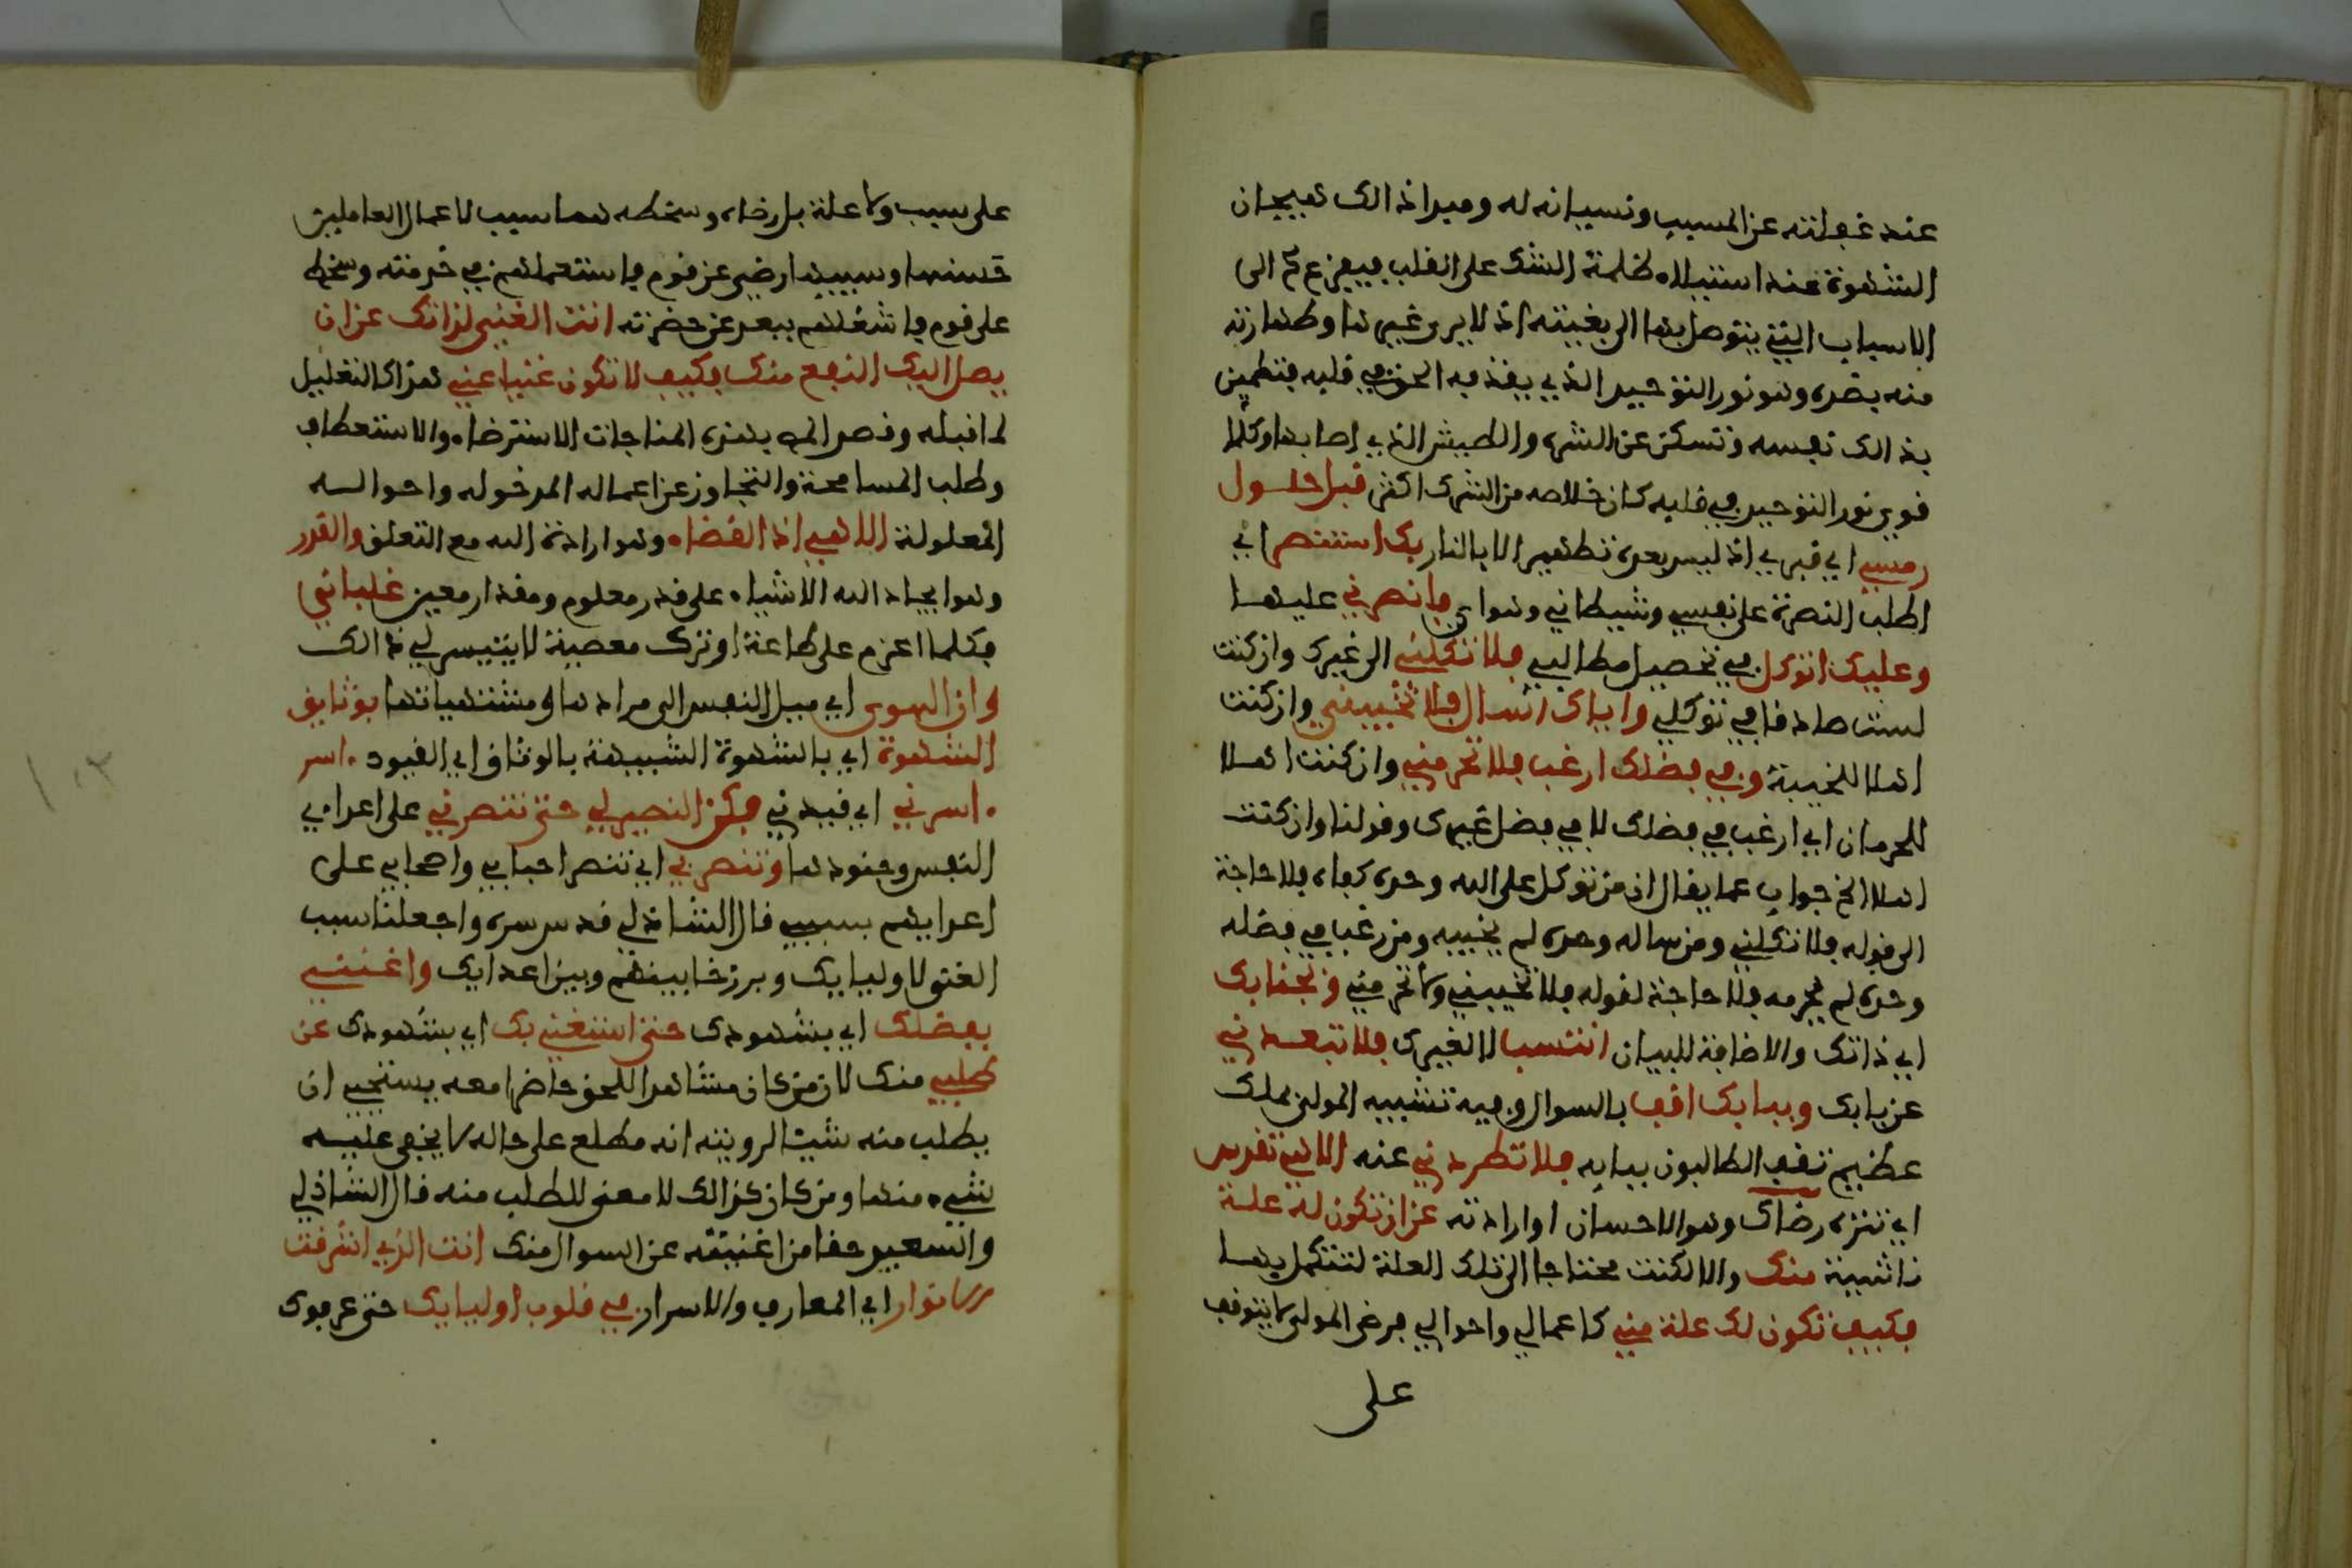 عند غفلته عن المسبب ونسيانه له ومبدا ذالك تهييجان
الشهوة عند استيلاء ظلمة الشك على القلب فيفزع ح الى
الاسباب التي يتوصل بها الى بغيته اذ لا يرى غيرها وطهارته
منه بضده وهو نور التوحيد الذي يقذفه الحق في قلبه فتطمئن
بذالك نفسه وتسكن عن الشره والطيش الذي اصابها وكلما
قوي نور التوحيد في قلبه كان خلاصه من الشرك اكثر قبل حلول
رمسي اي قبري اذ ليس بعده تطهير الا بالنار بك استنصر اي
اطلب النصرة على نفسي وشيطاني وهواي فانصرني عليهما
وعليك اتوكل في تحصيل مطالبي فلا تكلني الى غيرك وان كنت
لست صادقا في توكلي واياك اسال فلا تخيبني وان كنت
اهلا للخيبة وفي فضلك ارغب فلا تحرمني وان كنت اهلا
للحرمان اي ارغب في فضلك لا في فضل غيرك وقولنا وان كنت
اهلا الخ جواب عما يقال ان من توكل على الله وحده كفاه فلا حاجة
الى قوله فلا تكلني ومن ساله وحده لم يخيبه ومن رغب في فضله
وحده لم يحرمه فلا حاجة لقوله فلا تخيبني ولا تحرمني ولجنابك
اي ذاتك والاضافة للبيان انتسب لا لغيرك فلا تبعدني
عن بابك وببابك اقف بالسوال وفيه تشبيه المولى بملك
عظيم تقف الطالبون ببابه فلا تطردني عنه الاهي تقدس
اي تنزه رضاك وهو الاحسان او ارادته عن ان تكون له علة
ناشية منك والا لكنت محتاجا الى تلك العلة لتتكمل بها
فكيف تكون لك علة مني كاعمالي واحوالي فرضى المولى لا يتوقف
على
على سبب ولا علة بل رضاه وسخطه هما سبب لاعمال العاملين
حسنها وسيئها رضي عن قوم فاستعملهم في خدمته وسخط
على قوم فاشغلهم ببعد عن حضرته انت الغني لذاتك عن ان
يصل اليك النفع منك فكيف لا تكون غنيا عني هذا كالتعليل
لما قبله وقصد المص بهذه المناجات الاسترضاء والاستعطاف
وطلب المسامحة والتجاوز عن اعماله المدخوله واحواله
المعلولة الاهي ان القضاء وهو ارادة الله مع التعلق والقدر
وهو ايجاد الله الاشياء على قدر معلوم ومقدار معين غلباني
فكلما اعزم على طاعة او ترك معصية لا يتيسر لي ذالك
وان الهوى اي ميل النفس الى مرادها ومشتهياتها بوثايق
الشهوة اي بالشهوة الشبيهة بالوثاق اي القيود اسر
اسرني اي قيدني فكن النصير لي حتى تنصرني على اعداءي
النفس وجنودها وتنصر بي اي تنصر احبابي واصحابي على
اعدايهم بسببي قال الشاذلي قدس سره واجعلنا سبب
الغنى لاوليايك وبرزخا بينهم وبين اعدايك واغنني
بفضلك اي بشهودك حتى استغني بك اي بشهودك عن
طلبي منك لان من كان مشاهدا للحق حاضرا معه يستحيي ان
يطلب منه شيئا لرويته انه مطلع على حاله لا يخفى عليه
شيء منها ومن كان كذالك لا معنى للطلب منه قال الشاذلي
والسعيد حقا من اغنيته عن السوال منك انت الذي اشرقت
الانوار اي المعارف والاسرار في قلوب اوليايك حتى عرفوك
١٠٣